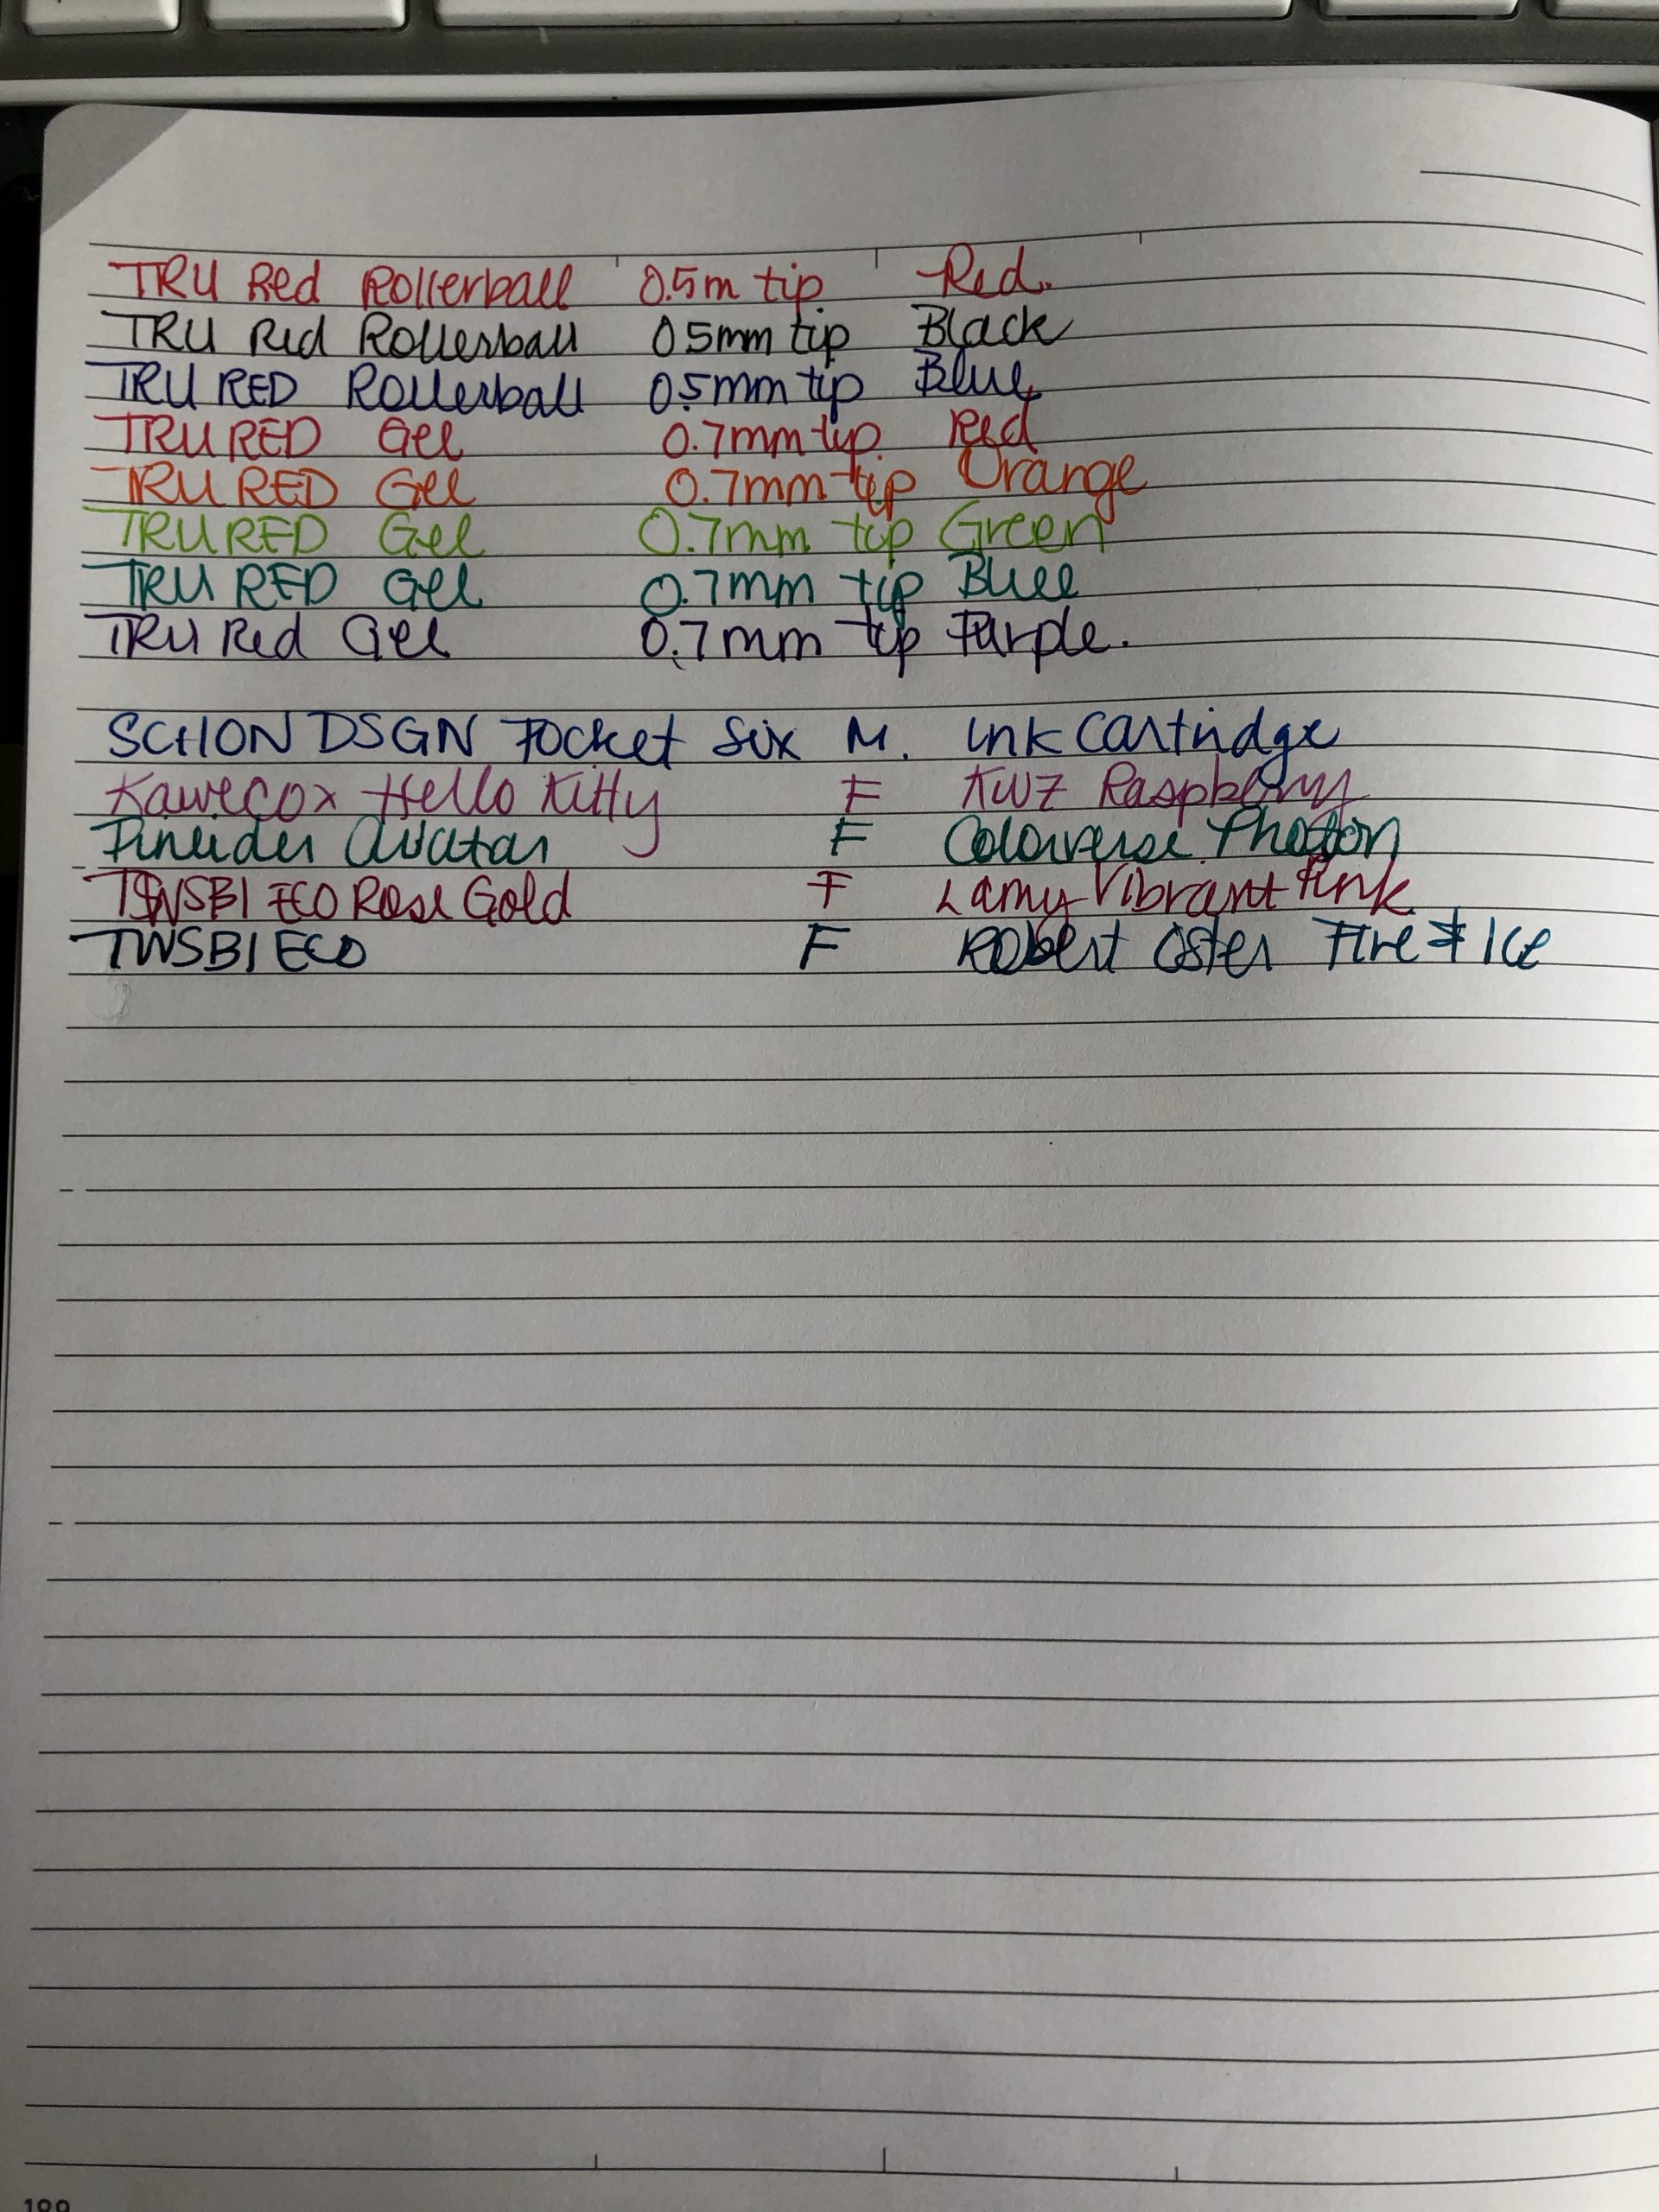 TRU Red Rollerball 0.5m tip Red.
TRU Red Rollerball 05mm tip Black
TRU RED Rollerball 0.5mm tip Blue
TRU RED Gel 0.7mm tip. Red
TRU RED Gel 0.7mm tip Orange
TRU RED Gel 0.7mm tip Green
TRU RED Gel 0.7mm tip Blue
TRU Red Gel 0.7mm tip Purple.
SCHON DSGN Pocket Six M. Ink Cartridge
Kaweco x Hello Kitty F KWZ Raspberry
Pineider Avatar F Colorverse Photon
TWSBI ECO Rose Gold F Lamy Vibrant Pink
TWSBI ECO F Robert Oster Fire & Ice